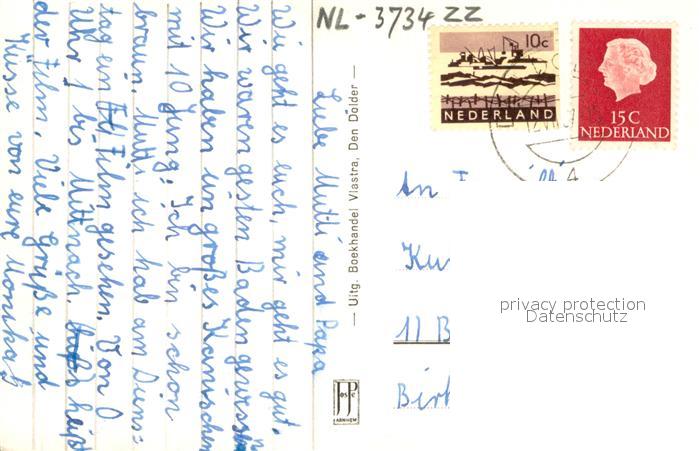 NL - 3734 ZZ
Liebe Mutti und Papa
Wie geht es euch, mir geht es gut.
Wir waren gesten Baden gewessen
Wir haben un großes Kanischen
mit 10 Jung. Ich bin schon
braun. Mutti ich hab am Duns=
tag ein Film gesehen. Von 0
Uhr 1 bis Mittnach. heißt
der Film. Viele Grüße und
Küsse von eure Monika
— Uitg. Boekhandel Vlastra, Den Dolder —
JosPe
ARNHEM
10c
NEDERLAND
15C
NEDERLAND
An
Ku
11 B
Birk
privacy protection
Datenschutz